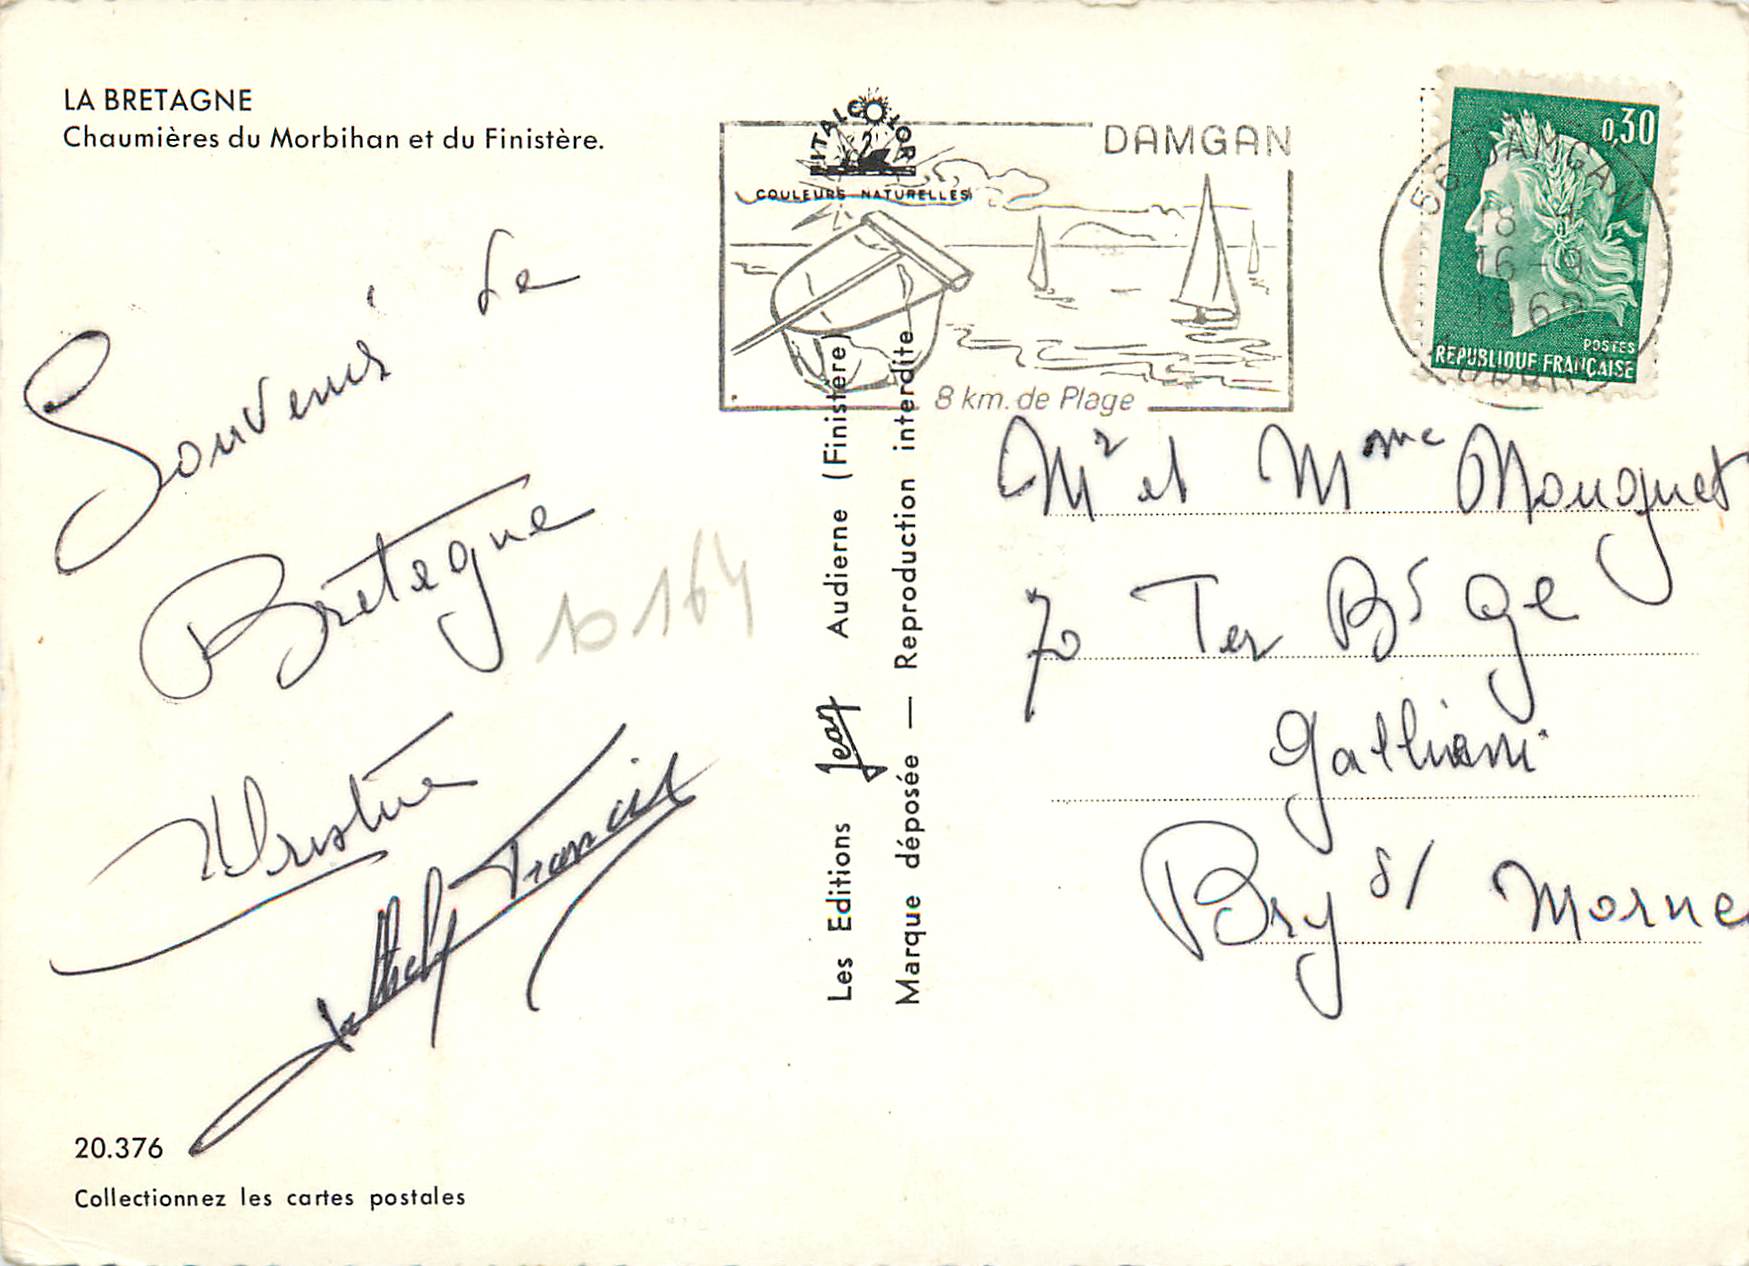 LA BRETAGNE
Chaumières du Morbihan et du Finistère.
VITALCOLOR
COULEURS NATURELLES
DAMGAN
8 km. de Plage
56 DAMGAN
18
16-9
196
0,30
POSTES
REPUBLIQUE FRANÇAISE
Souvenir de
Bretagne
Christine
Francis
10 164
Mr et Mme Mouquet
70 Ter Bd Ge
Gallieni
Bry s/ Marne
Les Editions Jean Audierne (Finistère)
Marque déposée — Reproduction interdite
20.376
Collectionnez les cartes postales